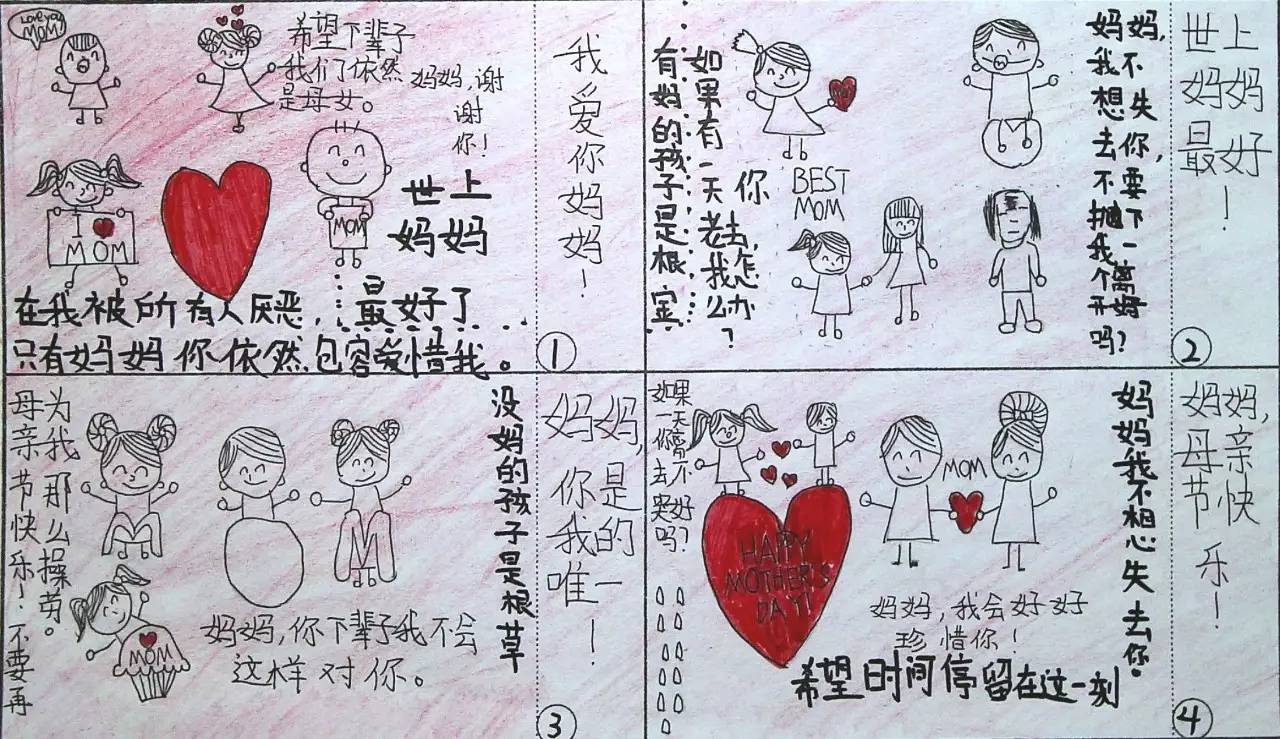 Love you
MOM!
希望下辈子
我们了依然
是母女。
妈妈,谢
谢
你!
I
MOM
MOM
世上
妈妈
最好了
在我被所有人厌恶,
只有妈妈你依然包容爱惜我。
我爱你妈妈!
①
有妈的孩子是根宝
如果有一天你老去,我怎么办?
BEST
MOM
妈妈,我不想失去你,不要抛下我一个离开好吗?
世上
妈妈
最好
!
②
母亲节快乐!不要再
为我那么操劳。
M
M
MOM
没妈的孩子是根草
妈妈,你下辈子我不会
这样对你。
妈妈,
你是
我的
唯一
!
③
如果
一天
你离
去不
哭好
吗?
HAPPY
MOTHER'S
DAY!
MOM
妈妈,我会好好
珍惜你!
希望时间停留在这一刻
妈妈我不想失去你。
妈妈,
母亲节快乐!
④